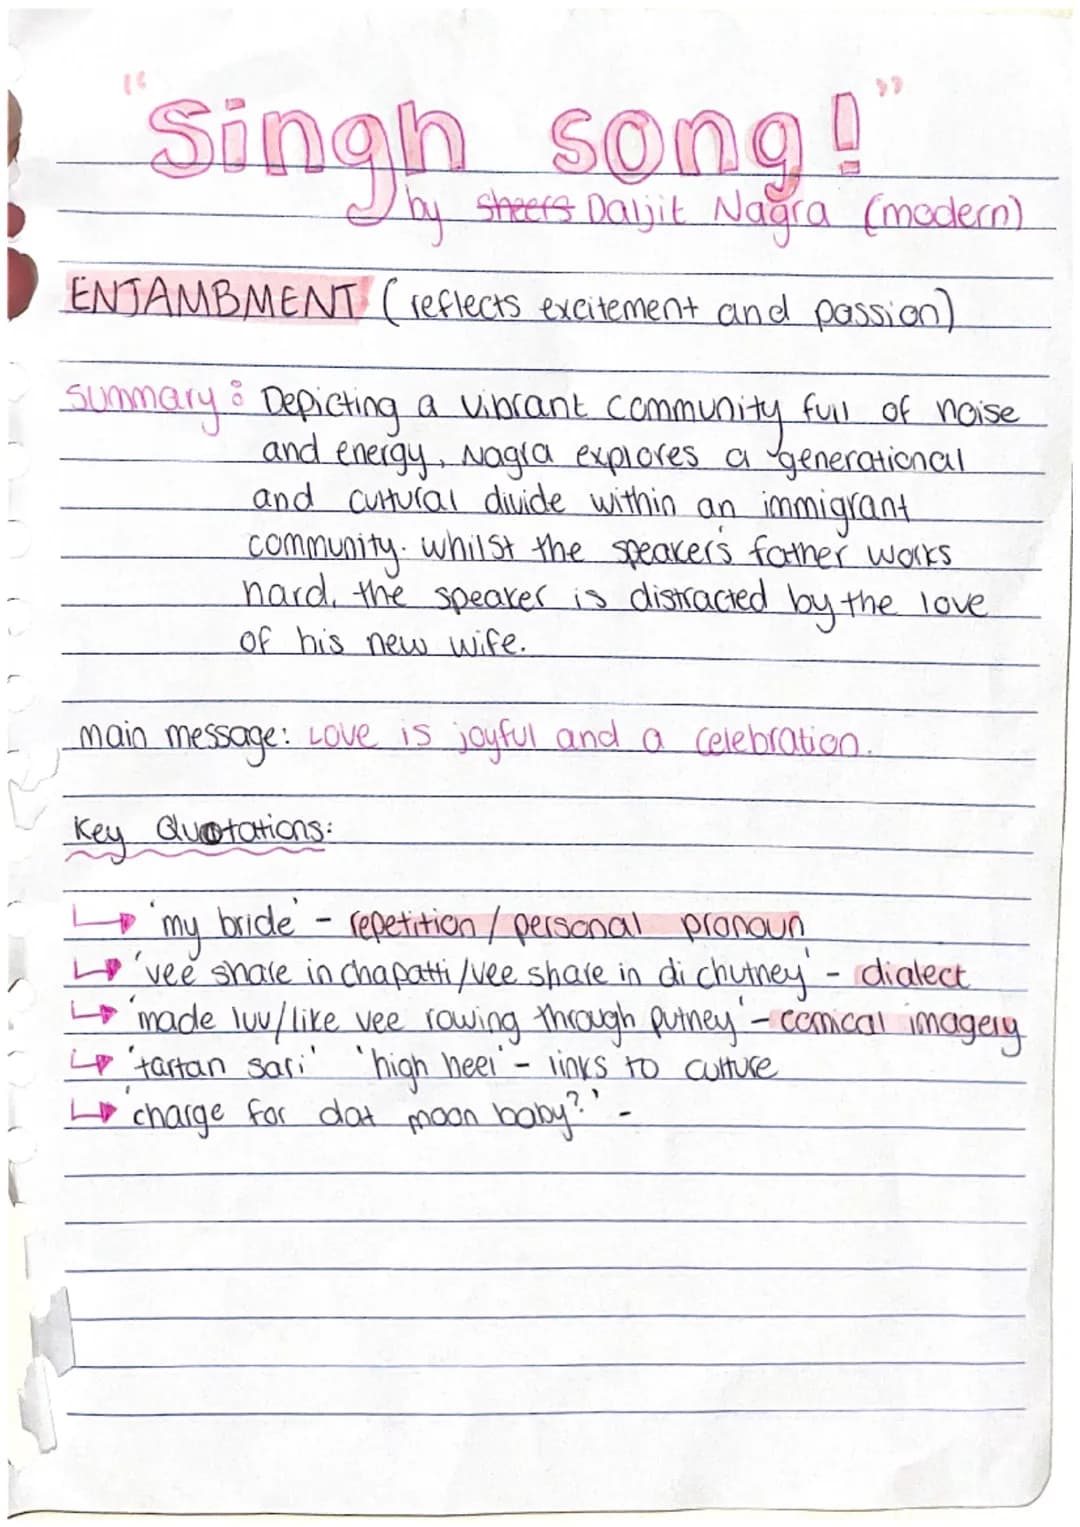 "Singh song!"
by Sheers Daljit Nagra (modern)
ENJAMBMENT (reflects excitement and passion)
Summary: Depicting a vibrant community full of noise
and energy, Nagra explores a generational
and cultural divide within an immigrant
community. Whilst the speaker's father works
hard, the speaker is distracted by the love
of his new wife.
main message: Love is joyful and a celebration.
Key Quotations:
'my bride' - repetition / personal pronoun
'vee share in chapatti/vee share in di chutney' - dialect
'made luv/like vee rowing through putney' - comical imagery
'tartan sari' 'high heel' - links to culture
'charge for dat moon baby?' -